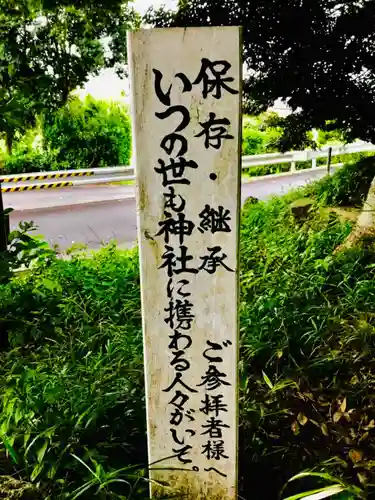 保存・継承 ご参拝者様へ
いつの世も神社に携わる人々がいそ。